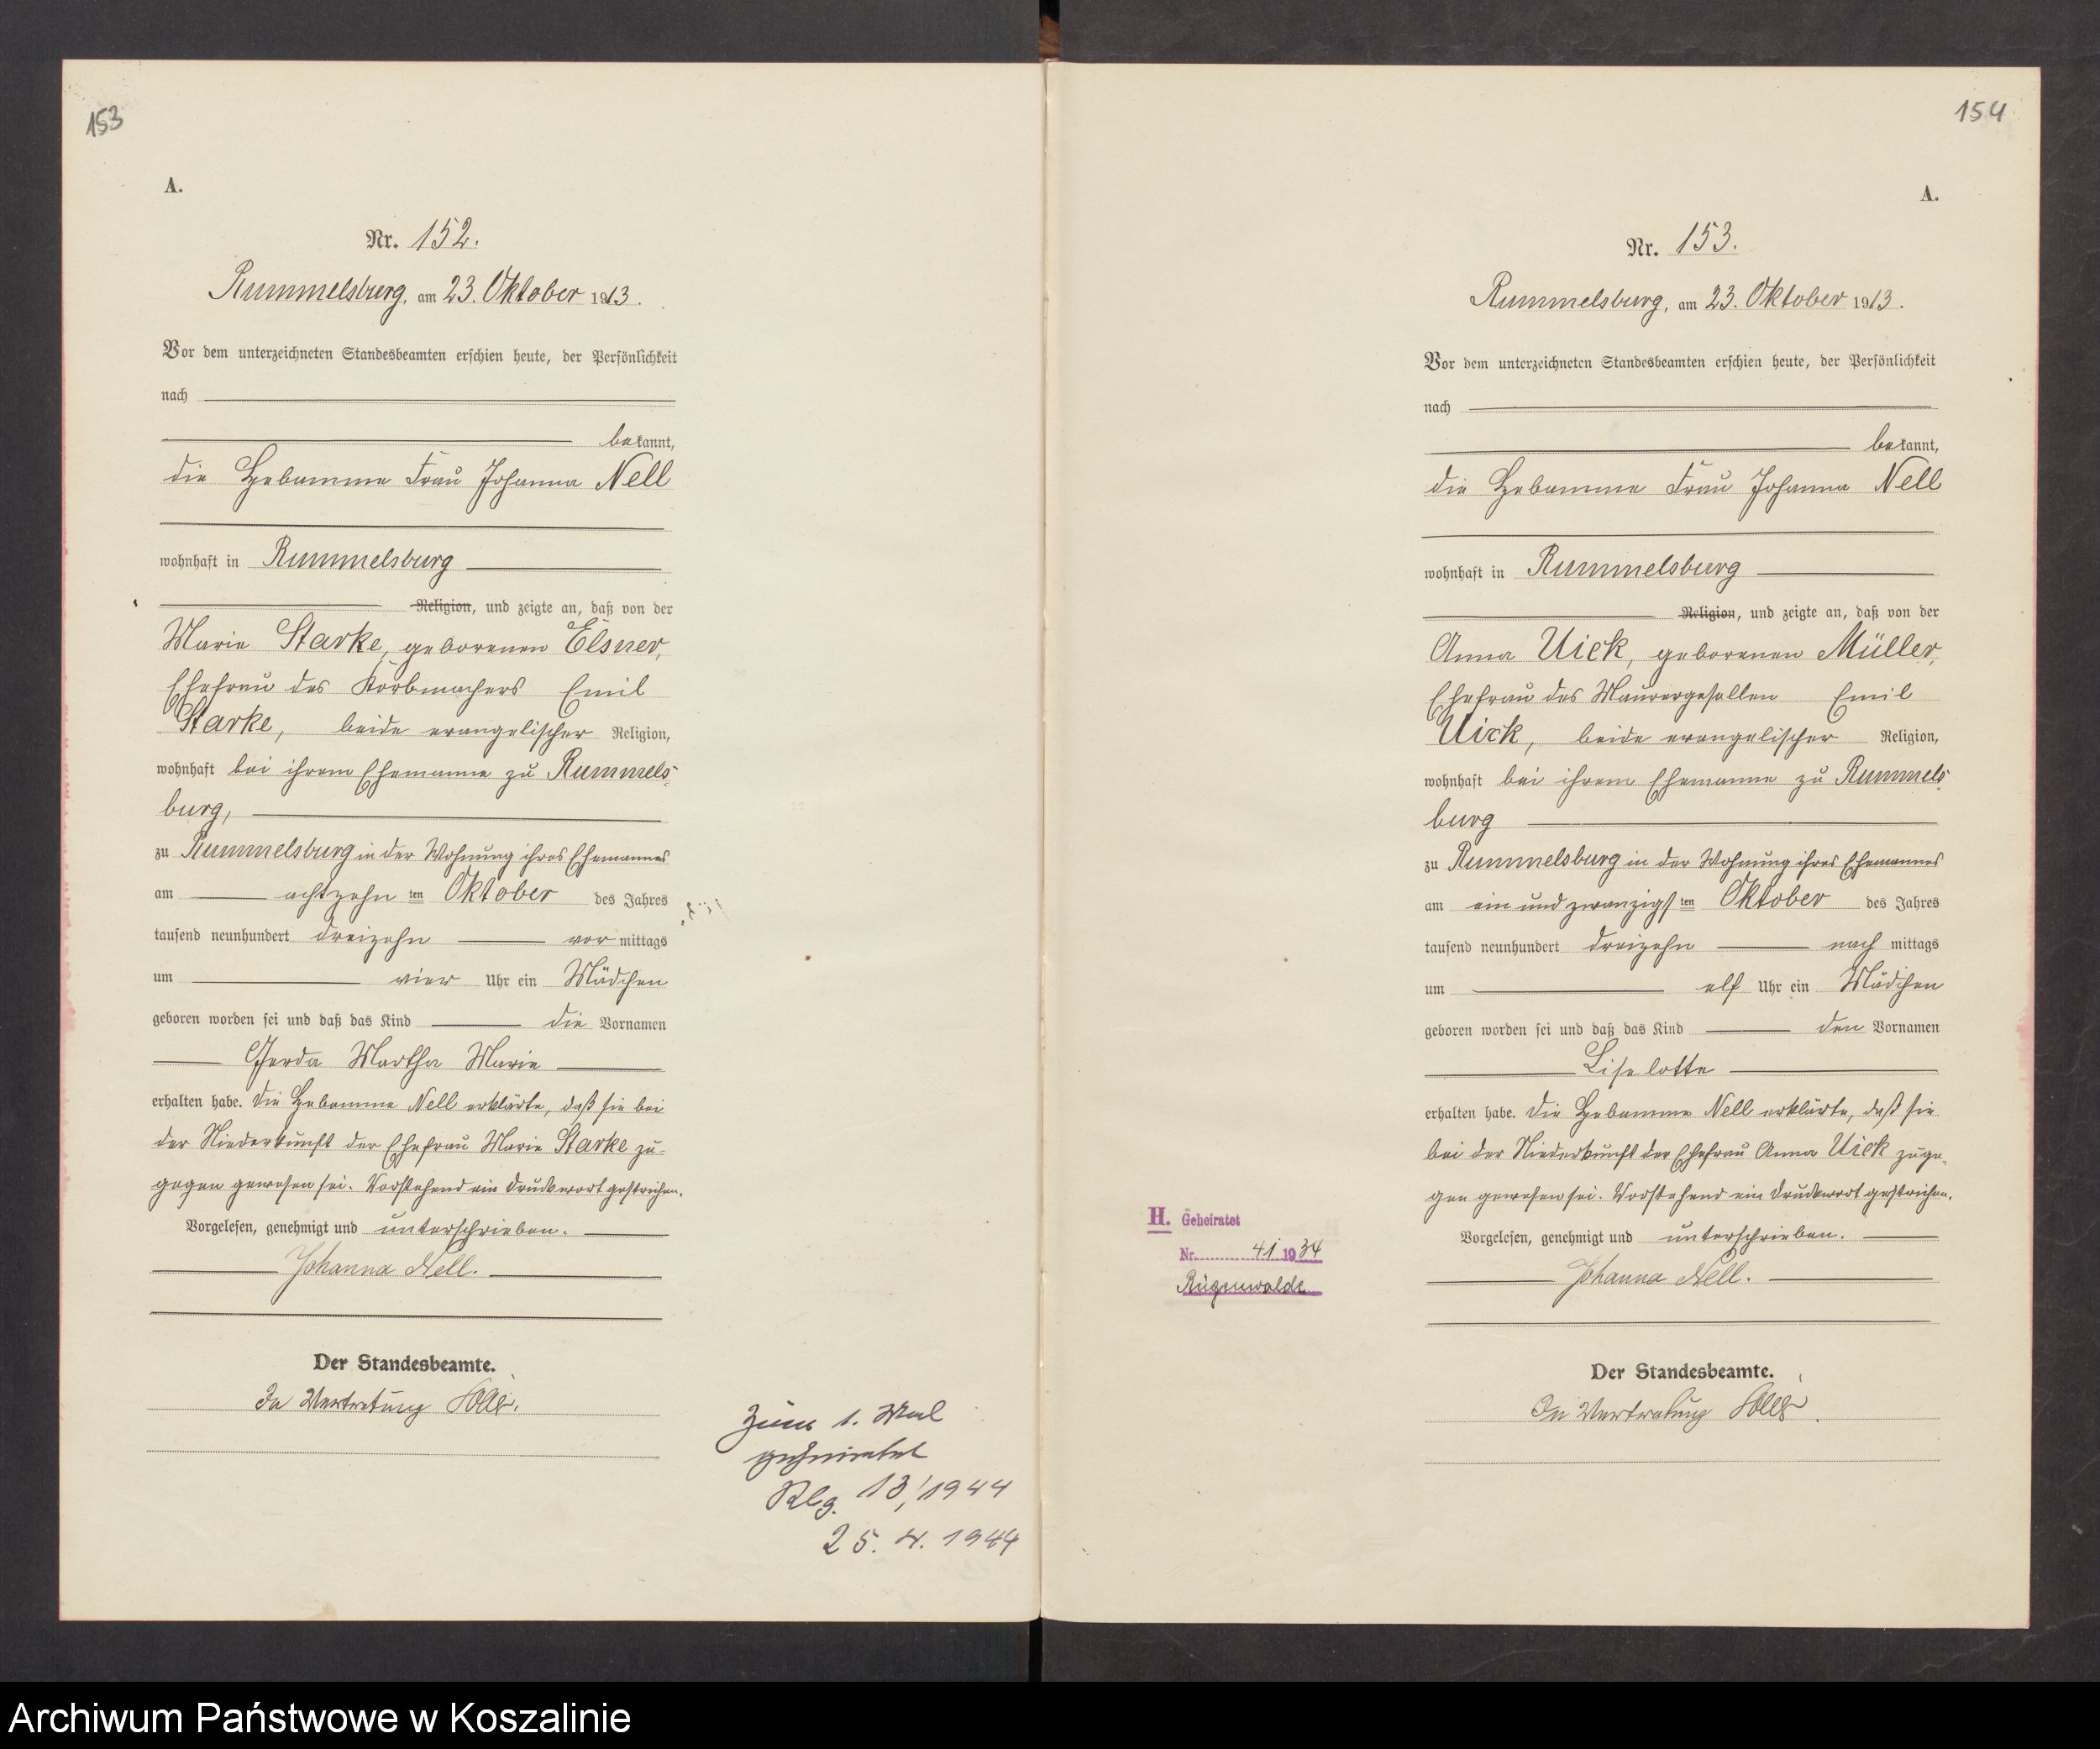 153
A.
Nr. 152.
Rummelsburg, am 23. Oktober 1913.
Vor dem unterzeichneten Standesbeamten erschien heute, der Persönlichkeit
nach
bekannt,
die Hebamme Frau Johanna Nell
wohnhaft in Rummelsburg
Religion, und zeigte an, daß von der
Marie Starke, geborenen Elsner,
Ehefrau des Korbmachers Emil
Starke, beide evangelischer Religion,
wohnhaft bei ihrem Ehemanne zu Rummels-
burg,
zu Rummelsburg in der Wohnung ihres Ehemannes
am achtzehn ten Oktober des Jahres
tausend neunhundert dreizehn vor mittags
um vier Uhr ein Mädchen
geboren worden sei und daß das Kind die Vornamen
Gerda Martha Marie
erhalten habe. Die Hebamme Nell erklärte, daß sie bei
der Niederkunft der Ehefrau Marie Starke zu-
gegen gewesen sei. Vorstehend ein Druckwort gestrichen.
Vorgelesen, genehmigt und unterschrieben.
Johanna Nell.
Der Standesbeamte.
In Vertretung
Zum 1. Mal
geheiratet
Rbg. 13/1944
25. 4. 1944
154
A.
Nr. 153.
Rummelsburg, am 23. Oktober 1913.
Vor dem unterzeichneten Standesbeamten erschien heute, der Persönlichkeit
nach
bekannt,
die Hebamme Frau Johanna Nell
wohnhaft in Rummelsburg
Religion, und zeigte an, daß von der
Anna Uick, geborenen Müller,
Ehefrau des Maurergesellen Emil
Uick, beide evangelischer Religion,
wohnhaft bei ihrem Ehemanne zu Rummels-
burg
zu Rummelsburg in der Wohnung ihres Ehemannes
am ein und zwanzigs ten Oktober des Jahres
tausend neunhundert dreizehn nach mittags
um elf Uhr ein Mädchen
geboren worden sei und daß das Kind den Vornamen
Liselotte
erhalten habe. Die Hebamme Nell erklärte, daß sie
bei der Niederkunft der Ehefrau Anna Uick zuge-
gen gewesen sei. Vorstehend ein Druckwort gestrichen.
Vorgelesen, genehmigt und unterschrieben.
Johanna Nell.
Der Standesbeamte.
In Vertretung
H. Geheiratet
Nr. 41 1934
Rügenwalde
Archiwum Państwowe w Koszalinie